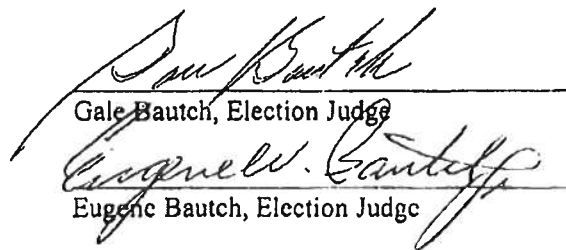 Gale Bautch
Gale Bautch, Election Judge
Eugene W. Bautch Jr
Eugene Bautch, Election Judge